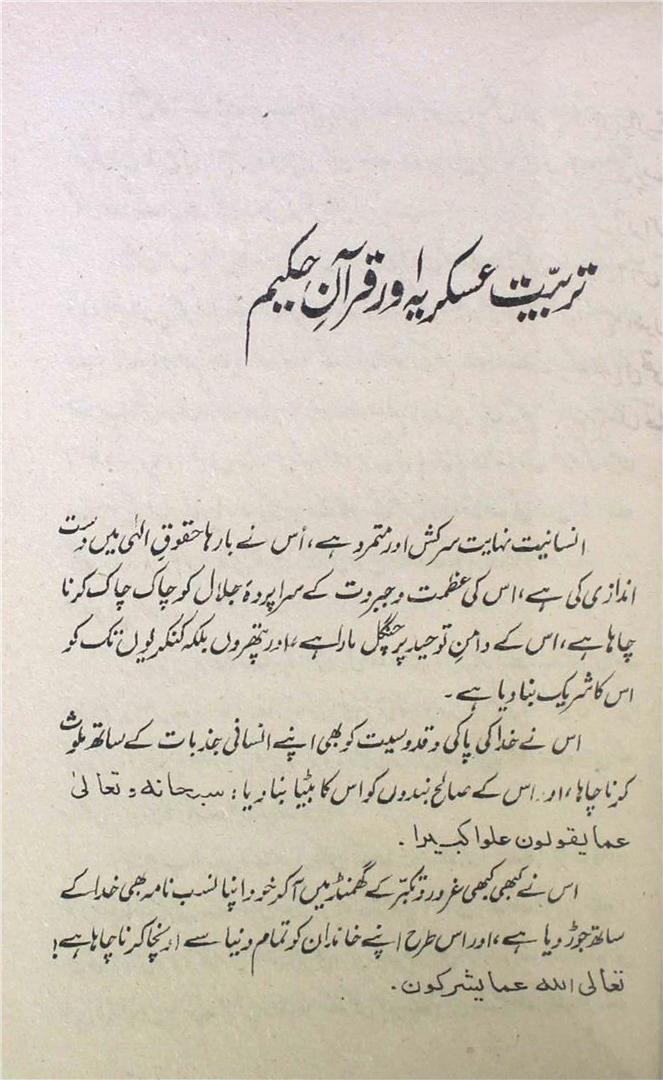 تربیّت عسکریہ اور قرآنِ حکیم
انسانیت نہایت سرکش اور متمرد ہے، اُس نے بارہا حقوقِ الٰہی میں دست
اندازی کی ہے، اس کی عظمت و جبروت کے سراپردۂ جلال کو چاک چاک کرنا
چاہا ہے، اس کے دامنِ توحید پر چنگل مارا ہے، اور پتھروں بلکہ کنکریوں تک کو
اس کا شریک بنا دیا ہے۔
اس نے خدا کی پاکی و قدوسیت کو بھی اپنے انسانی جذبات کے ساتھ ملوث
کرنا چاہا، اور اس کے صالح بندوں کو اس کا بیٹا بنا دیا؛ سبحانہ و تعالیٰ
عما یقولون علوا کبیرا.
اس نے کبھی کبھی غرور و تکبّر کے گھمنڈ میں آ کر خود اپنا نسب نامہ بھی خدا کے
ساتھ جوڑ دیا ہے، اور اس طرح اپنے خاندان کو تمام دنیا سے اونچا کرنا چاہا ہے!
تعالی اللہ عما یشرکون.